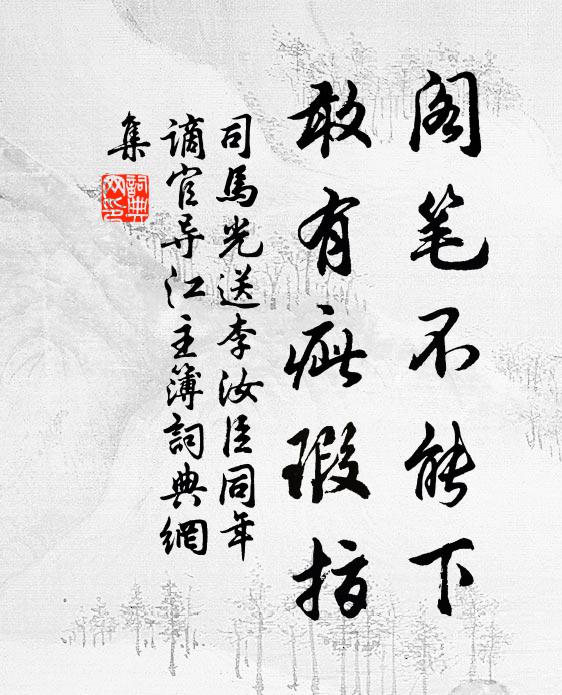 阁笔不能下
敢有疵瑕指
司馬光送李汝臣同年
谪官导江主簿詞典網
集
詞典
网印